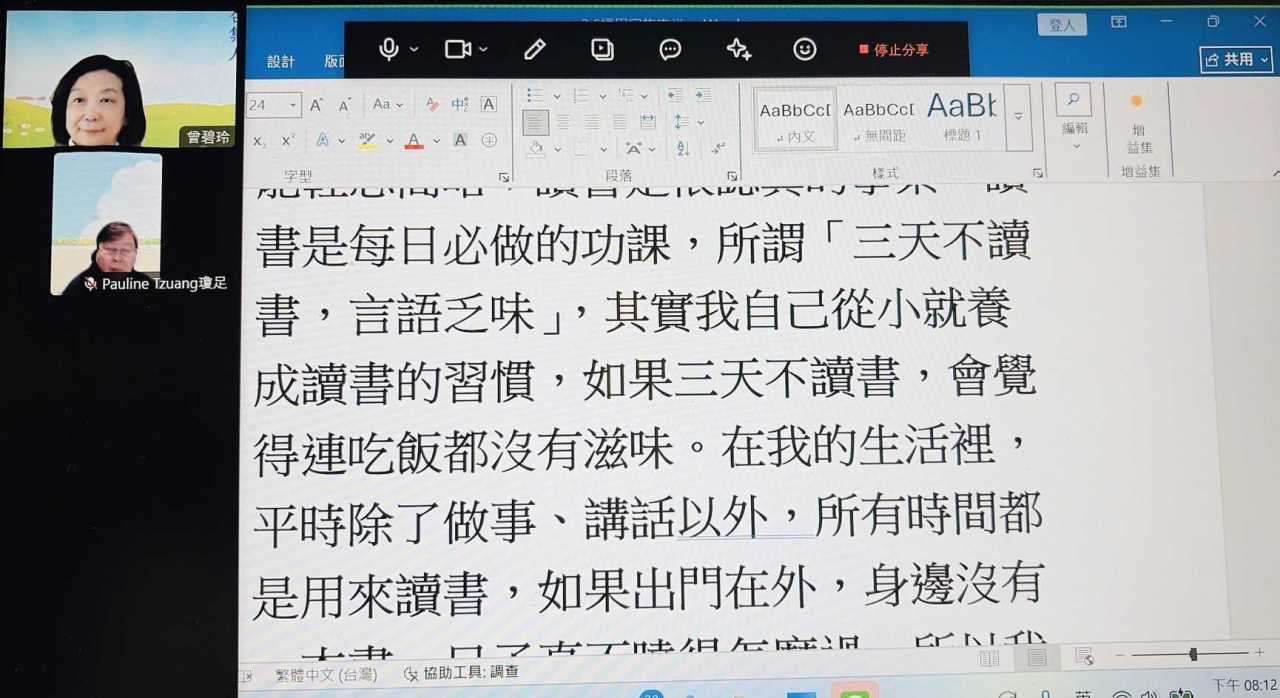 登入
停止分享
設計
共用
24
Aa
A
AaBbCcD
AaBbCcD
AaBb
內文
無間距
標題 1
編輯
增
益集
字型
段落
樣式
增益集
曾碧玲
Pauline Tzuang瓊足
書是每日必做的功課，所謂「三天不讀
書，言語乏味」，其實我自己從小就養
成讀書的習慣，如果三天不讀書，會覺
得連吃飯都沒有滋味。在我的生活裡，
平時除了做事、講話以外，所有時間都
是用來讀書，如果出門在外，身邊沒有
繁體中文 (台灣)
協助工具: 調查
下午 08:12